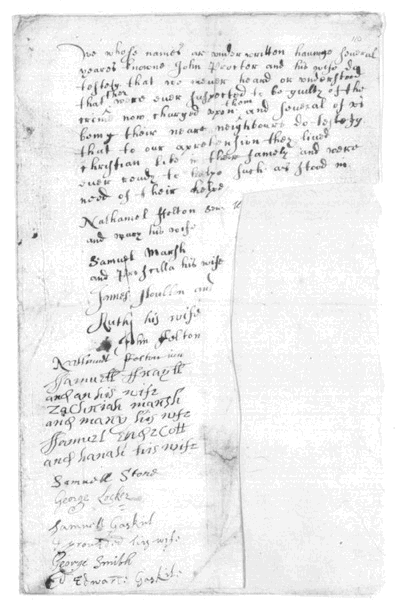 We whose names ar under written havinge several
yeares knowne John Procter and his wife do
testefy that we never heard or understood
that they were ever suspected to be guilty of the
crime now charged upon them and several of us
being their neare neighbours do testefy
that to our aprehension they lived
christian like in their famely and were
ever ready to helpe such as stood in
need of their helpe
Nathaniel Felton sen
and mary his wife
Samuel Marsh
and Priscilla his wife
James Houlton and
Ruth his wife
John Felton
Nathaniel Felton jun
Samuell Frayll
and an his wife
Zachriah marsh
and mary his wife
Samuel Endecott
and hanah his wife
Samuell Stone
George Locker
Samuell Gaskil
& provided his wife
George Smith
Ed Edward Gaskile